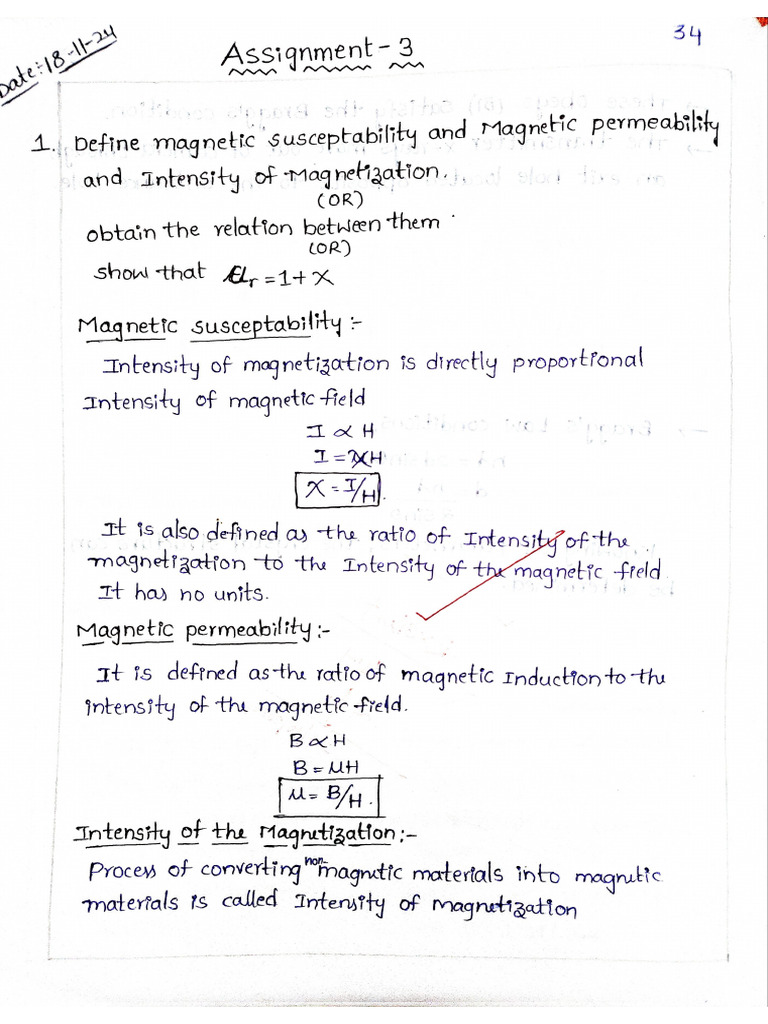 34
Date:18-11-24
Assignment-3
1. Define magnetic susceptability and Magnetic permeability
and Intensity of Magnetization.
(OR)
obtain the relation between them
(OR)
show that μr = 1 + χ
Magnetic susceptability :-
Intensity of magnetization is directly proportional
Intensity of magnetic field
I ∝ H
I = χH
χ = I/H.
It is also defined as the ratio of Intensity of the
magnetization to the Intensity of the magnetic field
It has no units.
Magnetic permeability :-
It is defined as the ratio of magnetic Induction to the
intensity of the magnetic field.
B ∝ H
B = μH
μ = B/H.
Intensity of the Magnetization :-
Process of converting non-magnetic materials into magnetic
materials is called Intensity of magnetization